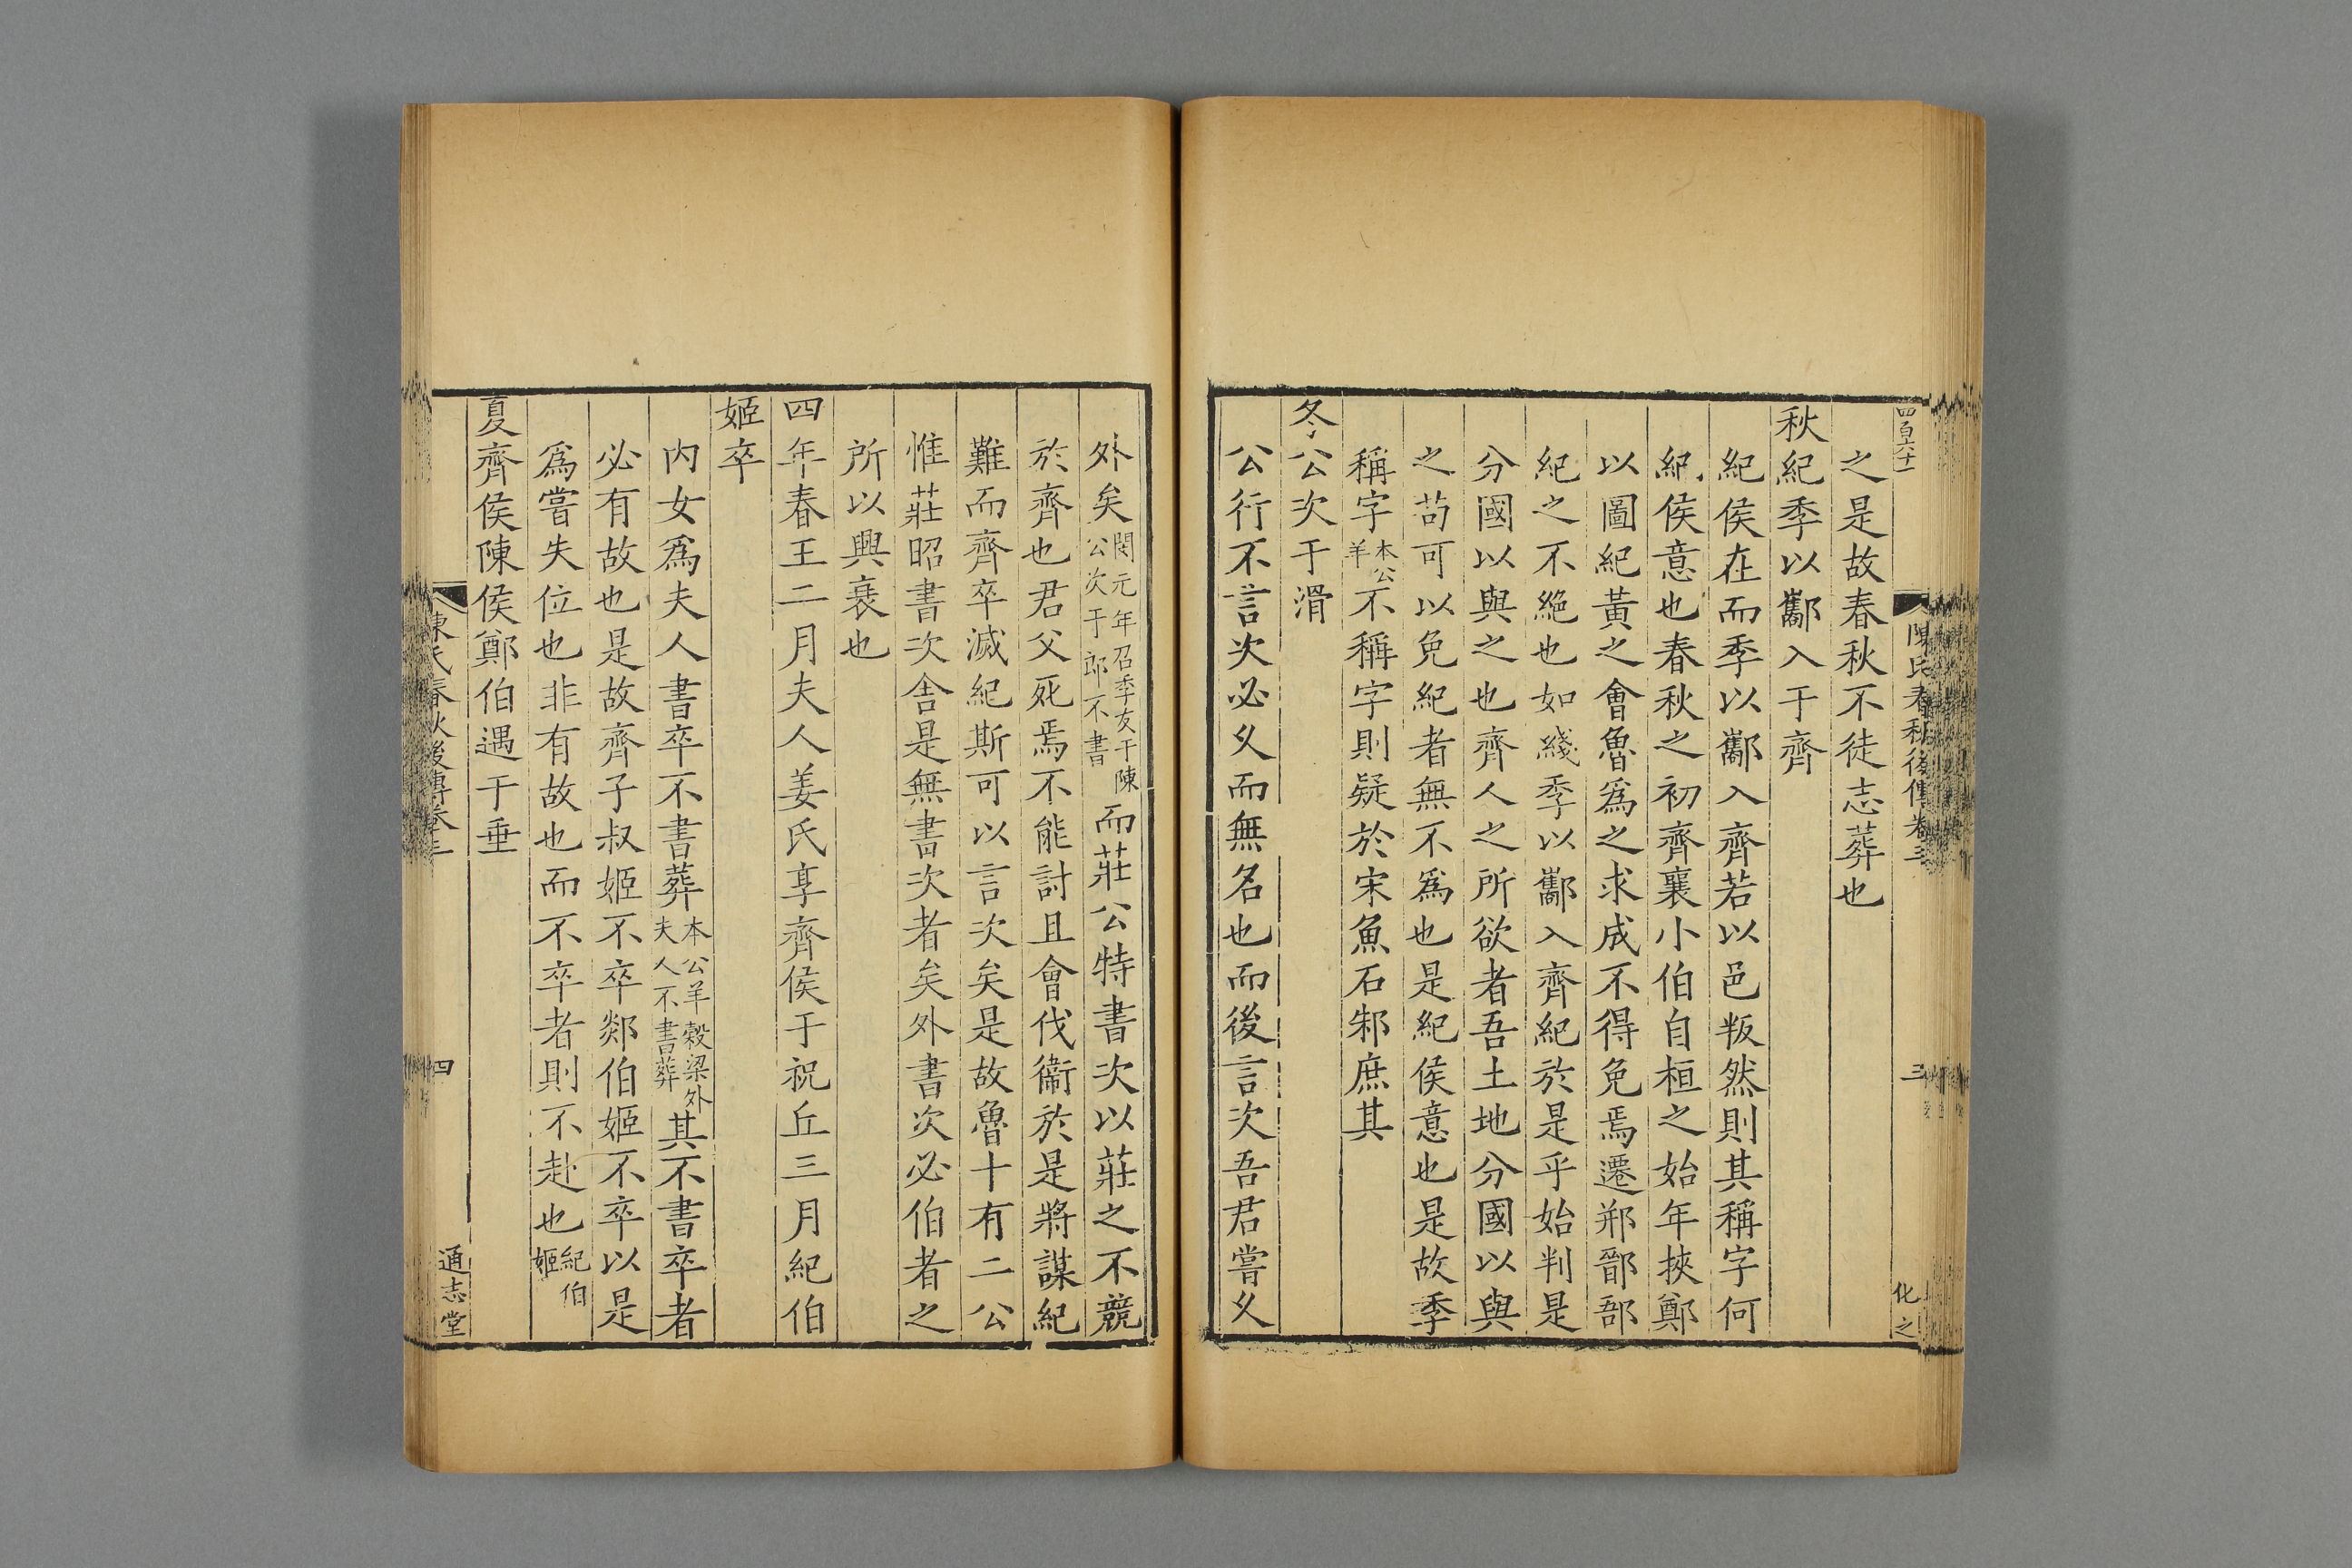 四百六十一
陳氏春秋後傳卷三
三
化之
之是故春秋不徒志葬也
秋紀季以酅入于齊
紀侯在而季以酅入齊若以邑叛然則其稱字何
紀侯意也春秋之初齊襄小伯自桓之始年挾鄭
以圖紀黃之會魯爲之求成不得免焉遷郱鄑郚
紀之不絶也如綫季以酅入齊紀於是乎始判是
分國以與之也齊人之所欲者吾土地分國以與
之苟可以免紀者無不爲也是紀侯意也是故季
稱字本公羊不稱字則疑於宋魚石邾庶其
冬公次于滑
公行不言次必久而無名也而後言次吾君嘗久
外矣閔元年召季友于陳公次于郎不書而莊公特書次以莊之不競
於齊也君父死焉不能討且會伐衞於是將謀紀
難而齊卒滅紀斯可以言次矣是故魯十有二公
惟莊昭書次舍是無書次者矣外書次必伯者之
所以興衰也
四年春王二月夫人姜氏享齊侯于祝丘三月紀伯
姬卒
内女爲夫人書卒不書葬本公羊穀梁外夫人不書葬其不書卒者
必有故也是故齊子叔姬不卒郯伯姬不卒以是
爲嘗失位也非有故也而不卒者則不赴也紀伯姬
夏齊侯陳侯鄭伯遇于垂
陳氏春秋後傳卷三
四
通志堂